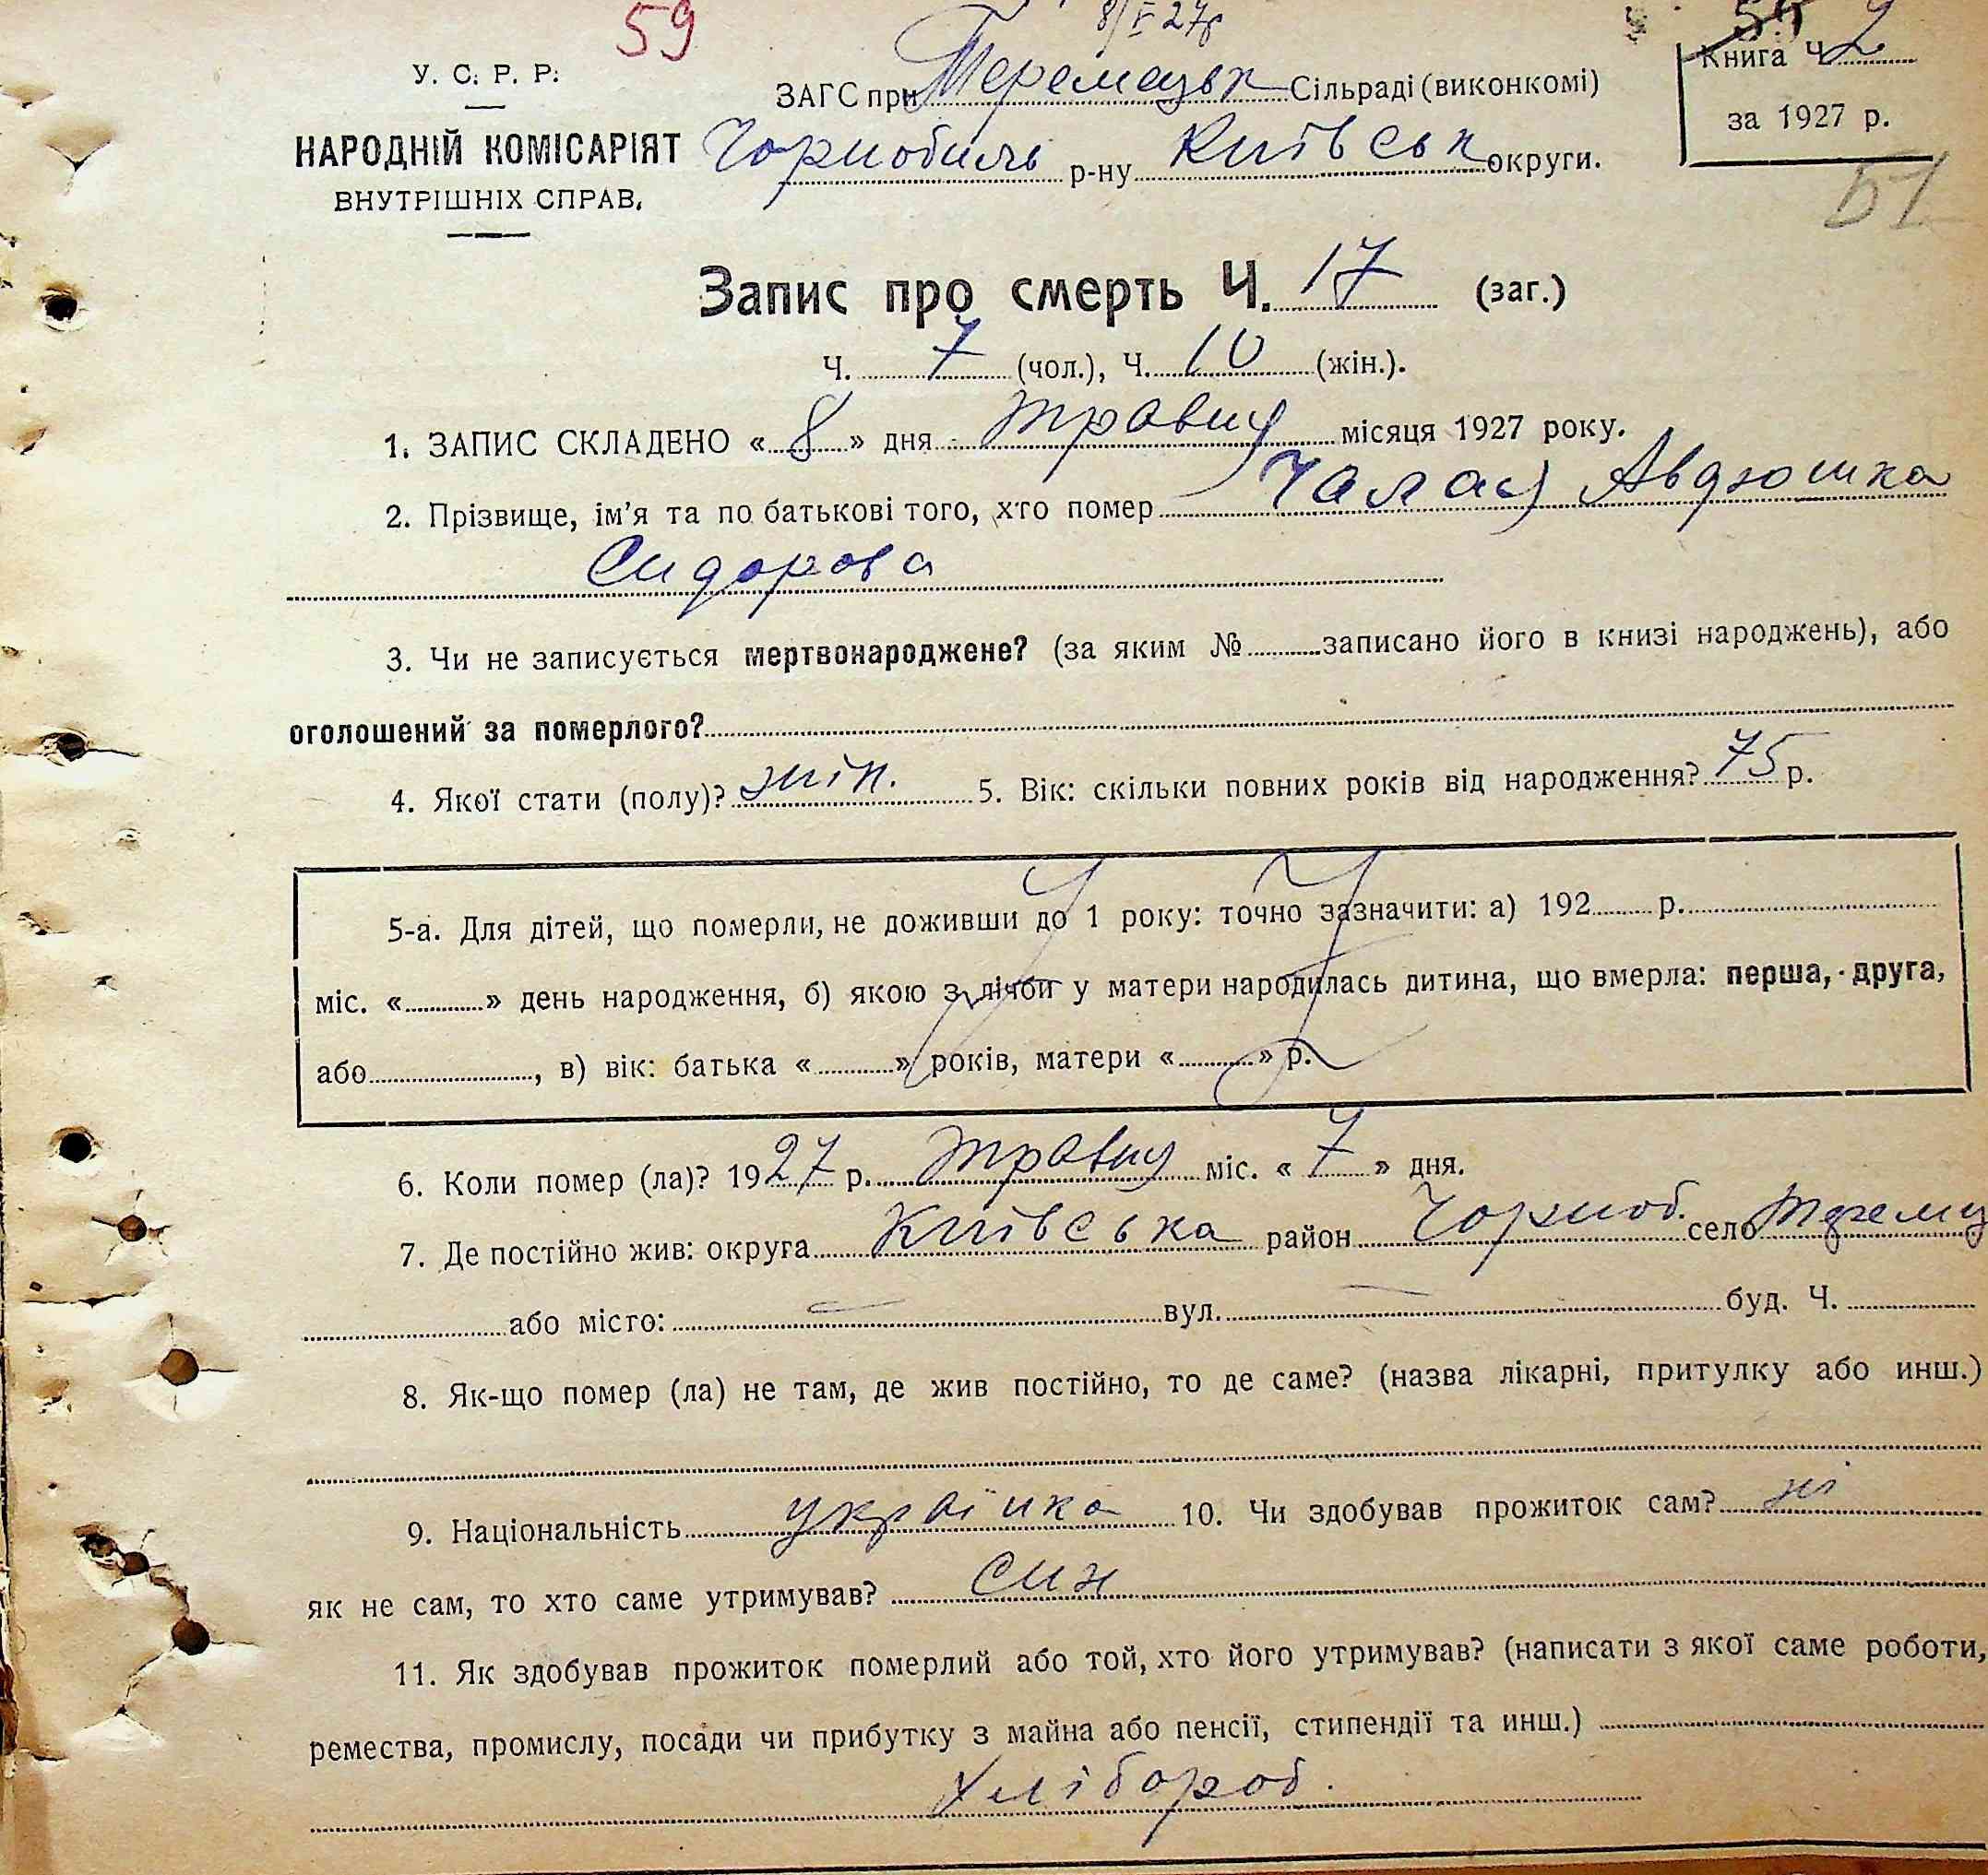 59
8/V 27р
У. С. Р. Р.
ЗАГС при Теремецьк Сільраді (виконкомі)
Книга Ч. 2
за 1927 р.
НАРОДНІЙ КОМІСАРІЯТ
ВНУТРІШНІХ СПРАВ.
Чорнобиль р-ну Київськ округи.
51
Запис про смерть Ч. 17 (заг.)
Ч. 7 (чол.), Ч. 10 (жін.).
1. ЗАПИС СКЛАДЕНО «8» дня травня місяця 1927 року.
2. Прізвище, ім’я та по батькові того, хто помер Чалая Авдюшка
Сидорова
3. Чи не записується мертвонароджене? (за яким № записано його в книзі народжень), або
оголошений за померлого?
4. Якої стати (полу)? жін. 5. Вік: скільки повних років від народження? 75 р.
5-а. Для дітей, що померли, не доживши до 1 року: точно зазначити: а) 192 р.
міс. « » день народження, б) якою з лічби у матери народилась дитина, що вмерла: перша, друга,
або , в) вік: батька « » років, матери « » р.
6. Коли помер (ла)? 1927 р. травня міс. «7» дня.
7. Де постійно жив: округа Київська район Чорноб. село Теремц
або місто: — вул. — буд. Ч.
8. Як-що помер (ла) не там, де жив постійно, то де саме? (назва лікарні, притулку або инш.)
9. Національність українка 10. Чи здобував прожиток сам? ні
як не сам, то хто саме утримував? син
11. Як здобував прожиток померлий або той, хто його утримував? (написати з якої саме роботи,
ремества, промислу, посади чи прибутку з майна або пенсії, стипендії та инш.)
Хлібороб.